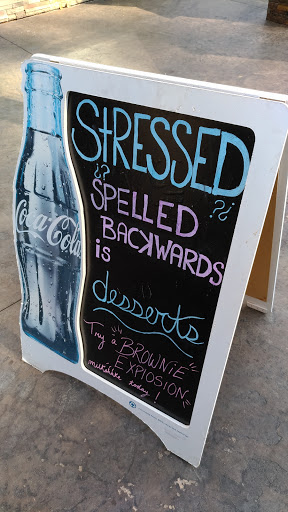 STRESSED
¿? ?¿
SPELLED
BACKWARDS
is
desserts
Try a BROWNiE
EXPLOSION
milkshake today!
Coca-Cola